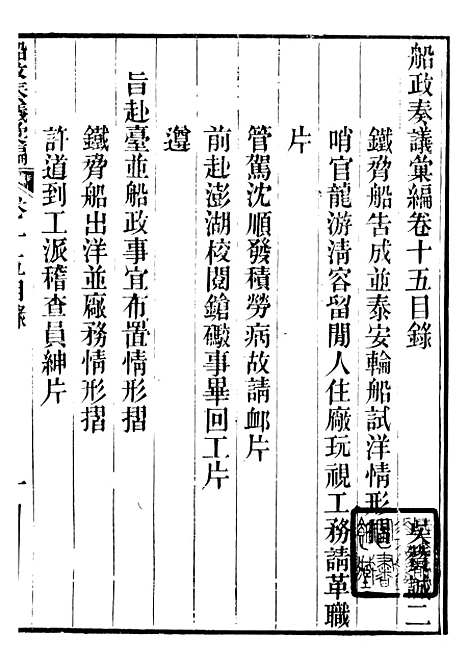 船政奏議彙編卷十五目錄
吳贊誠二
鐵脅船告成並泰安輪船試洋情形摺
哨官龍游淸容留閒人住廠玩視工務請革職
片
管駕沈順發積勞病故請卹片
前赴澎湖校閱鎗礮事畢回工片
遵
旨赴臺並船政事宜布置情形摺
鐵脅船出洋並廠務情形摺
許道到工派稽查員紳片
船政奏議彙編
卷十五目錄
一